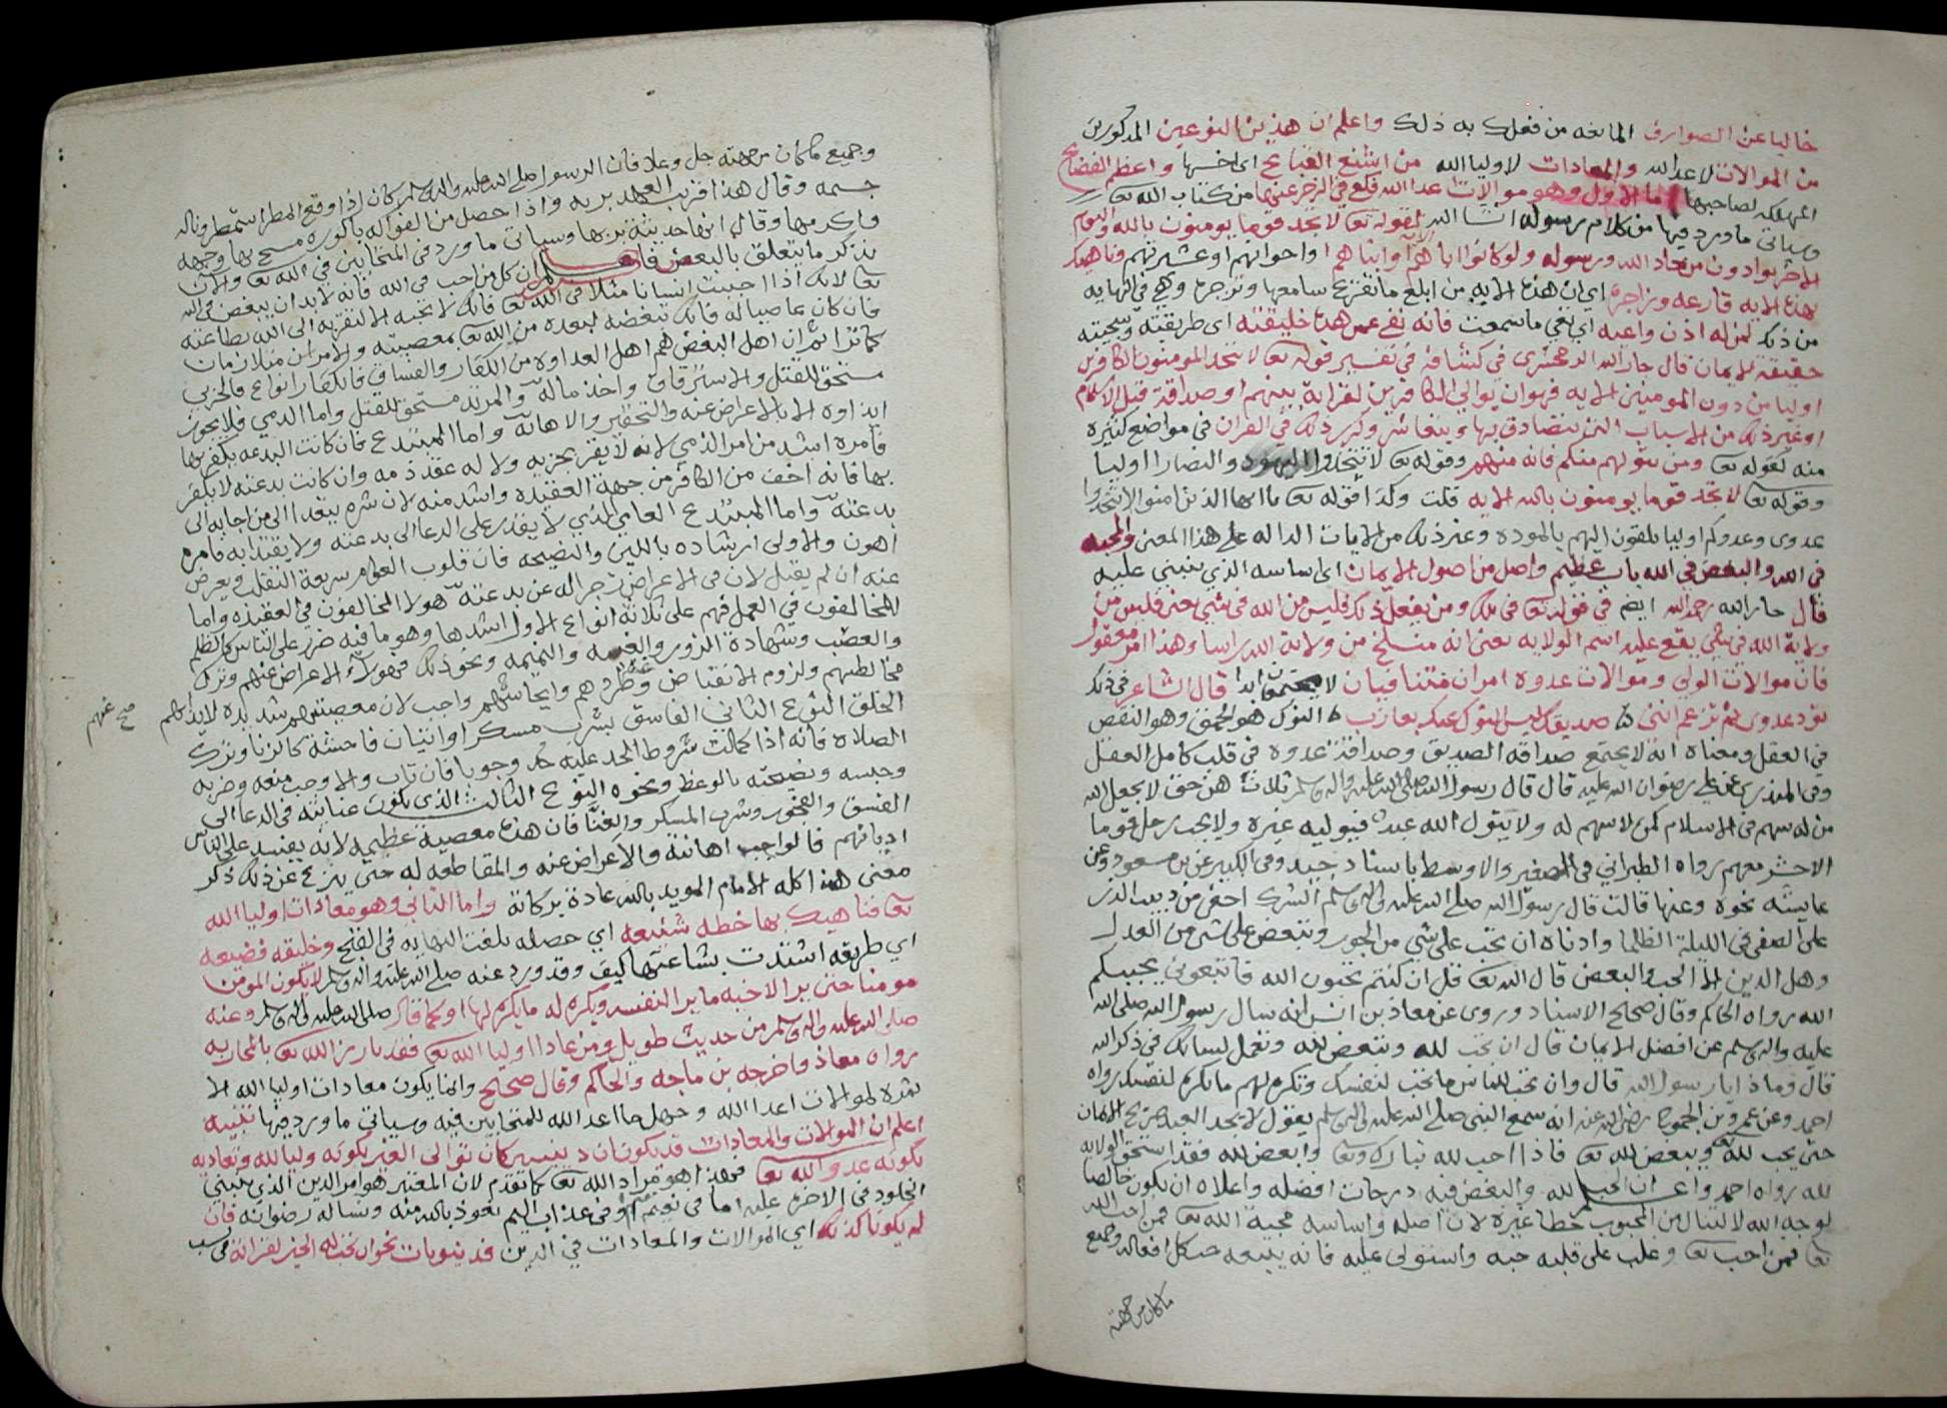 خاليا عن الصوارف المانعه من فعلك به ذلك واعلم ان هذين النوعين المذكورين
من الموالات لاعدا الله والمعادات لاوليا الله من اشنع القبايح اي اخسها واعظم الفضايح
المهلكه لصاحبها اما الاول وهو موالات اعدا الله فكم في الزجر عنها من كتاب الله تعا
وسياتي ما ورد فيها من كلام رسوله انشا الله لقوله تعا لا تجد قوما يومنون بالله واليوم
الاخر يوادون من حاد الله ورسوله ولو كانوا اباهم او ابناهم او اخوانهم او عشيرتهم فناهيك
بهذه الايه قارعه وزاجرة اي ان هذه الايه من ابلغ ما تقرع سامعها وتزجره وهي في النهايه
من ذلك لمن له اذن واعيه اي تعي ما سمعت فانه نفى عمن هذه خليقته اي طريقته وسجيته
حقيقة الايمان قال جار الله الزمخشري في كشافه في تفسير قوله تعا لا يتخذ المومنون الكافرين
اوليا من دون المومنين الايه نهوا ان يوالي الكافرين لقرابة بينهم او صداقة قبل الاسلام
او غير ذلك من الاسباب التي يتصادق بها ويتعاشر وكرر ذلك في القران في مواضع كثيره
منه كقوله تعا ومن يتولهم منكم فانه منهم وقوله تعا لا تتخذوا اليهود والنصارا اوليا
وقوله تعا لا تجد قوما يومنون بالله الايه قلت وكذا قوله تعا يا ايها الذين امنوا لا تتخذوا
عدوي وعدوكم اوليا تلقون اليهم بالموده وغير ذلك من الايات الداله على هذا المعنى والمحبه
في الله والبغض في الله باب عظيم واصل من اصول الايمان اي اساسه الذي ينبني عليه
قال جار الله رحمه الله ايضا في قوله تعا ومن يفعل ذلك فليس من الله في شي يعني فليس من
ولاية الله في شي يقع عليه اسم الولايه يعني انه منسلخ من ولاية الله راسا وهذا امر معقول
فان موالات الولي وموالات عدوه امران متنافيان لا يجتمعان ابدا قال الشاعر في ذلك
تود عدوي ثم تزعم انني صديقك ليس النوك عنك بعازب النوك هو الحمق وهو النقص
في العقل ومعناه انه لا يجتمع صداقه الصديق وصداقة عدوه في قلب كامل العقل
وفي المنذري عن علي رضوان الله عليه قال قال رسول الله صلى الله عليه واله وسلم ثلاث هن حق لا يجعل الله
من له سهم في الاسلام كمن لا سهم له ولا يتول الله عبد فيوليه غيره ولا يحب رجل قوما
الا حشر معهم رواه الطبراني في الصغير والاوسط باسناد جيد وفي الكبير عن بن مسعود وعن
عايشه نحوه وعنها قالت قال رسول الله صلى الله عليه واله وسلم الشرك اخفى من دبيب الذر
على الصفى في الليلة الظلما وادناه ان تحب على شي من الجور وتبغض على شي من العدل
وهل الدين الا الحب والبغض قال الله تعا قل ان كنتم تحبون الله فاتبعوني يحببكم
الله رواه الحاكم وقال صحيح الاسناد وروى عن معاذ بن انس انه سال رسول الله صلى الله
عليه واله وسلم عن افضل الايمان قال ان تحب لله وتبغض لله وتعمل لسانك في ذكر الله
قال وماذا يا رسول الله قال وان تحب للناس ما تحب لنفسك وتكره لهم ما تكره لنفسك رواه
احمد وعن عمرو بن الجموح رضي الله عنه انه سمع النبي صلى الله عليه واله وسلم يقول لا يجد العبد صريح الايمان
حتى يحب لله ويبغض لله تعا فاذا احب لله تبارك وتعا وابغض لله فقد استحق الولايه
لله رواه احمد واعلم ان الحب لله والبغض فيه درجات افضله واعلاه ان يكون خالصا
لوجه الله لا لتنال من المحبوب حظا غيره لان اصله واساسه محبة الله تعا فمن احب الله
تعا فمن احب تعا وغلب على قلبه حبه واستولى عليه فانه يتبعه حب كل افعاله وجميع
ما كان من جهته
وجميع ما كان من جهته جل وعلا فان الرسول صلى الله عليه واله وسلم كان اذا وقع المطر استمطر وناله
جسمه وقال هذا قريب العهد بربه واذا حصل من الفواكه باكوره مسح بها وجهه
واكرمها وقال انها حديثة بربها وسياتي ما ورد في المتحابين في الله تعا والان
نذكر ما يتعلق بالبغض فاعلم ان كل من احب في الله فانه لا بد ان يبغض في الله
تعا لانك اذا احببت انسانا مثلا في الله تعا فانك لا تحبه الا لتقربه الى الله بطاعته
فان كان عاصيا له فانك تبغضه لبعده من الله تعا بمعصيته والامران متلازمان
كما ترا ثم ان اهل البغض هم اهل العداوه من الكفار والفساق فالكفار انواع فالحربي
مستحق للقتل والاسترقاق واخذ ماله والمرتد مستحق للقتل واما الذمي فلا يجوز
ايذاوه الا بالاعراض عنه والتحقير والاهانه واما المبتدع فان كانت البدعه يكفر بها
فامره اشد من امر الذمي لانه لا يقر بجزيه ولا له عقد ذمه وان كانت بدعته لا يكفر
بها فانه اخف من الكافر من جهة العقيده واشد منه لان شره يتعدا الى من اجابه الى
بدعته واما المبتدع العامي الذي لا يقدر على الدعا الى بدعته ولا يقتدا به فامره
اهون والاولى ارشاده باللين والنصيحه فان قلوب العوام سريعة التقلب ويعرض
عنه ان لم يقبل لان في الاعراض زجرا له عن بدعته هولا المخالفون في العقيده واما
المخالفون في العمل فهم على ثلاثة انواع الاول اشدها وهو ما فيه ضرر على الناس كالظلم
والغصب وشهادة الزور والغيبه والنميمه ونحو ذلك فهولاء الاعراض عنهم وترك
مخالطتهم ولزوم الانقباض وطردهم وايحاشهم واجب لان معصيتهم شديده لايذاهم
صح عنهم
الخلق النوع الثاني الفاسق بشرب مسكر او اتيان فاحشة كالزنا وترك
الصلاه فانه اذا كملت شروط الحد عليه حد وجوبا فان تاب والا وجب منعه وضربه
وحبسه ونصيحته بالوعظ ونحوه النوع الثالث الذي يكون عنايته في الدعا الى
الفسق والفجور وشرب المسكر والغنا فان هذه معصية عظيمه لانه يفسد على الناس
اديانهم فالواجب اهانته والاعراض عنه والمقاطعه له حتى ينزع عن ذلك ذكر
معنى هذا كله الامام المويد بالله عادة بركاته واما الثاني وهو معادات اوليا الله
تعا فناهيك بها خطه شنيعه اي خصله بلغت النهايه في القبح وخليقه فضيعه
اي طريقه اشتدت بشاعتها كيف وقد ورد عنه صلى الله عليه واله وسلم لا يكون المومن
مومنا حتى يرا لاخيه ما يرا لنفسه ويكره له ما يكره لها او كما قال صلى الله عليه واله وسلم وعنه
صلى الله عليه واله وسلم من حديث طويل ومن عادا اوليا الله تعا فقد بارز الله تعا بالمحاربه
رواه معاذ واخرجه بن ماجه والحاكم وقال صحيح وانما يكون معادات اوليا الله الا
ثمره لموالات اعدا الله للمتحابين فيه وسياتي ما ورد فيها تنبيه
اعلم ان الموالات والمعادات قد يكونان دينيين كان توالي الغير لكونه وليا لله وتعاديه
لكونه عدو الله تعا فهذا هو مراد الله تعا كما تقدم لان المعتبر هو امر الدين الذي ينبني
الخلود في الاخره عليه اما في نعيم او في عذاب اليم نعوذ بالله منه ونساله رضوانه فان
لم يكونا كذلك اي الموالات والمعادات في الدين فدنيويات نحو ان تحب له الخير لقرابة في نسب